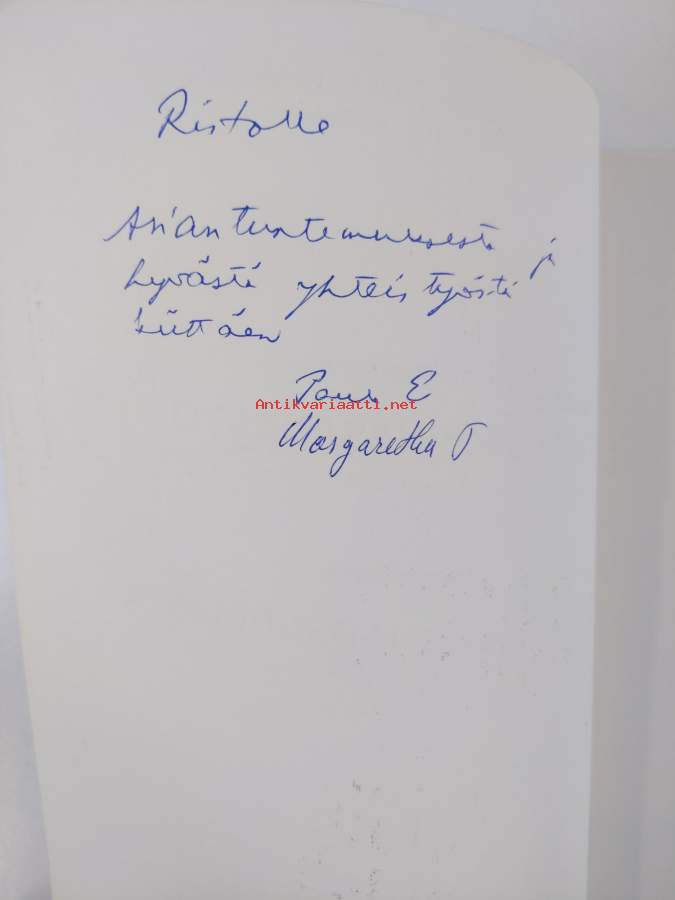 Ristolle
Asiantuntemuksesta ja
hyvästä yhteistyöstä
kiittäen
E
Antikvariaatti.net
Margaretha T